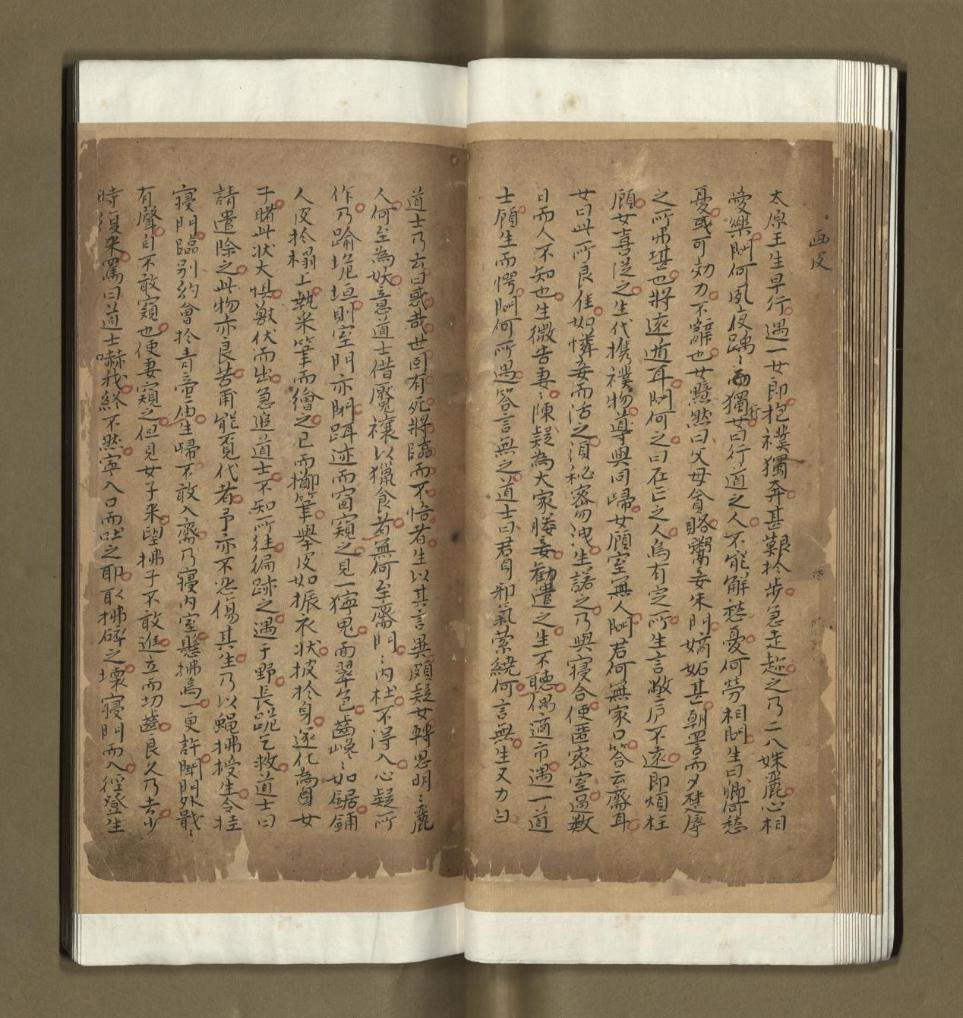 画皮
太原王生早行遇一女郎抱襆獨奔甚艱扵步急走趁之乃二八姝麗心相
愛樂問何夙夜踽〻獨行女曰行道之人不能解愁憂何勞相問生曰卿何愁
憂或可効力不辭也女黯然曰父母貪賂鬻妾朱門嫡妒甚朝詈而夕楚辱
之所弗堪也將遠逝耳問何之曰在亡之人烏有定所生言敝廬不遠即煩枉
顧女喜從之生代携襆物導與同歸女顧室無人問君何無家口答云齋耳
女曰此所良佳如憐妾而活之須秘密勿洩生諾之乃與寢合使匿密室過數
日而人不知也生微告妻〻陳疑為大家媵妾勸遣之生不聽偶適市遇一道
士顧生而愕問何所遇答言無之道士曰君身邪氣縈繞何言無生又力白
道士乃去曰惑哉世固有死將臨而不悟者生以其言異頗疑女轉思明〻麗
人何至為妖意道士借魘禳以獵食者無何至齋門〻内杜不得入心疑所
作乃踰垝垣則室門亦閉躡迹而窗窺之見一獰鬼面翠色齒巉〻如鋸鋪
人皮扵榻上執采筆而繪之已而擲筆舉皮如振衣狀披扵身遂化為女
子睹此狀大惧獸伏而出急追道士不知所徃徧跡之遇于野長跪乞救道士曰
請遣除之此物亦良苦甫能覓代者予亦不忍傷其生乃以蠅拂授生令挂
寢門臨別約會扵青帝廟生歸不敢入齋乃寢内室懸拂焉一更許聞門外戢〻
有聲自不敢窺也使妻窺之但見女子來望拂子不敢進立而切齒良久乃去少
時復来罵曰道士嚇我終不然寧入口而吐之耶取拂碎之壞寢門而入徑登生